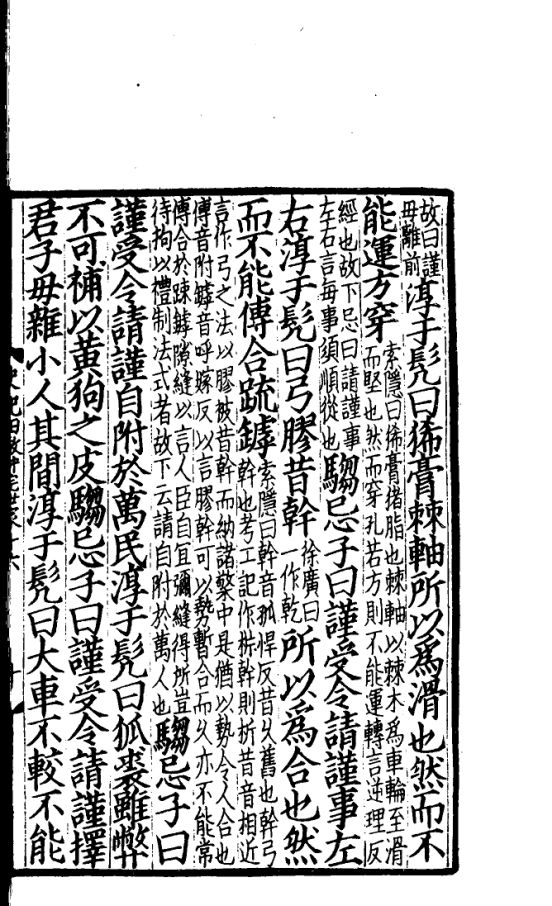 故曰謹
毋離前
淳于髡曰狶膏棘軸所以爲滑也然而不
能運方穿
索隱曰狶膏猪脂也棘軸以棘木爲車輪至滑
而堅也然而穿孔若方則不能運轉言逆理反
經也故下忌曰請謹事
左右言每事須順從也
騶忌子曰謹受令請謹事左
右淳于髡曰弓膠昔幹
徐廣曰
一作乾
所以爲合也然
而不能傅合疏罅
索隱曰幹音孤悍反昔久舊也幹弓
幹也考工記作㭊幹則折昔音相近
言作弓之法以膠被昔幹而納諸檠中是猶以勢令人合也
傅音附罅音呼嫁反以言膠幹可以勢暫合而久亦不能常
傅合於疎罅隙縫以言人臣自宜彌縫得所豈
待拘以禮制法式者故下云請自附於萬人也
騶忌子曰
謹受令請謹自附於萬民淳于髡曰狐裘雖弊
不可補以黃狗之皮騶忌子曰謹受令請謹擇
君子毋雜小人其間淳于髡曰大車不較不能